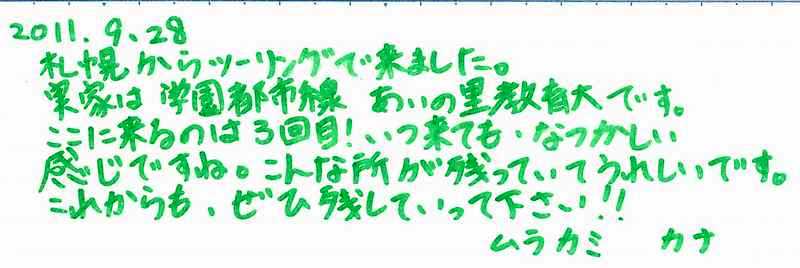 2011.9.28
札幌からツーリングで来ました。
実家は学園都市線 あいの里教育大です。
ここに来るのは3回目!いつ来ても、なつかしい
感じですね。こんな所が残っていてうれしいです。
これからも、ぜひ残していって下さい!!
ムラカミ カナ